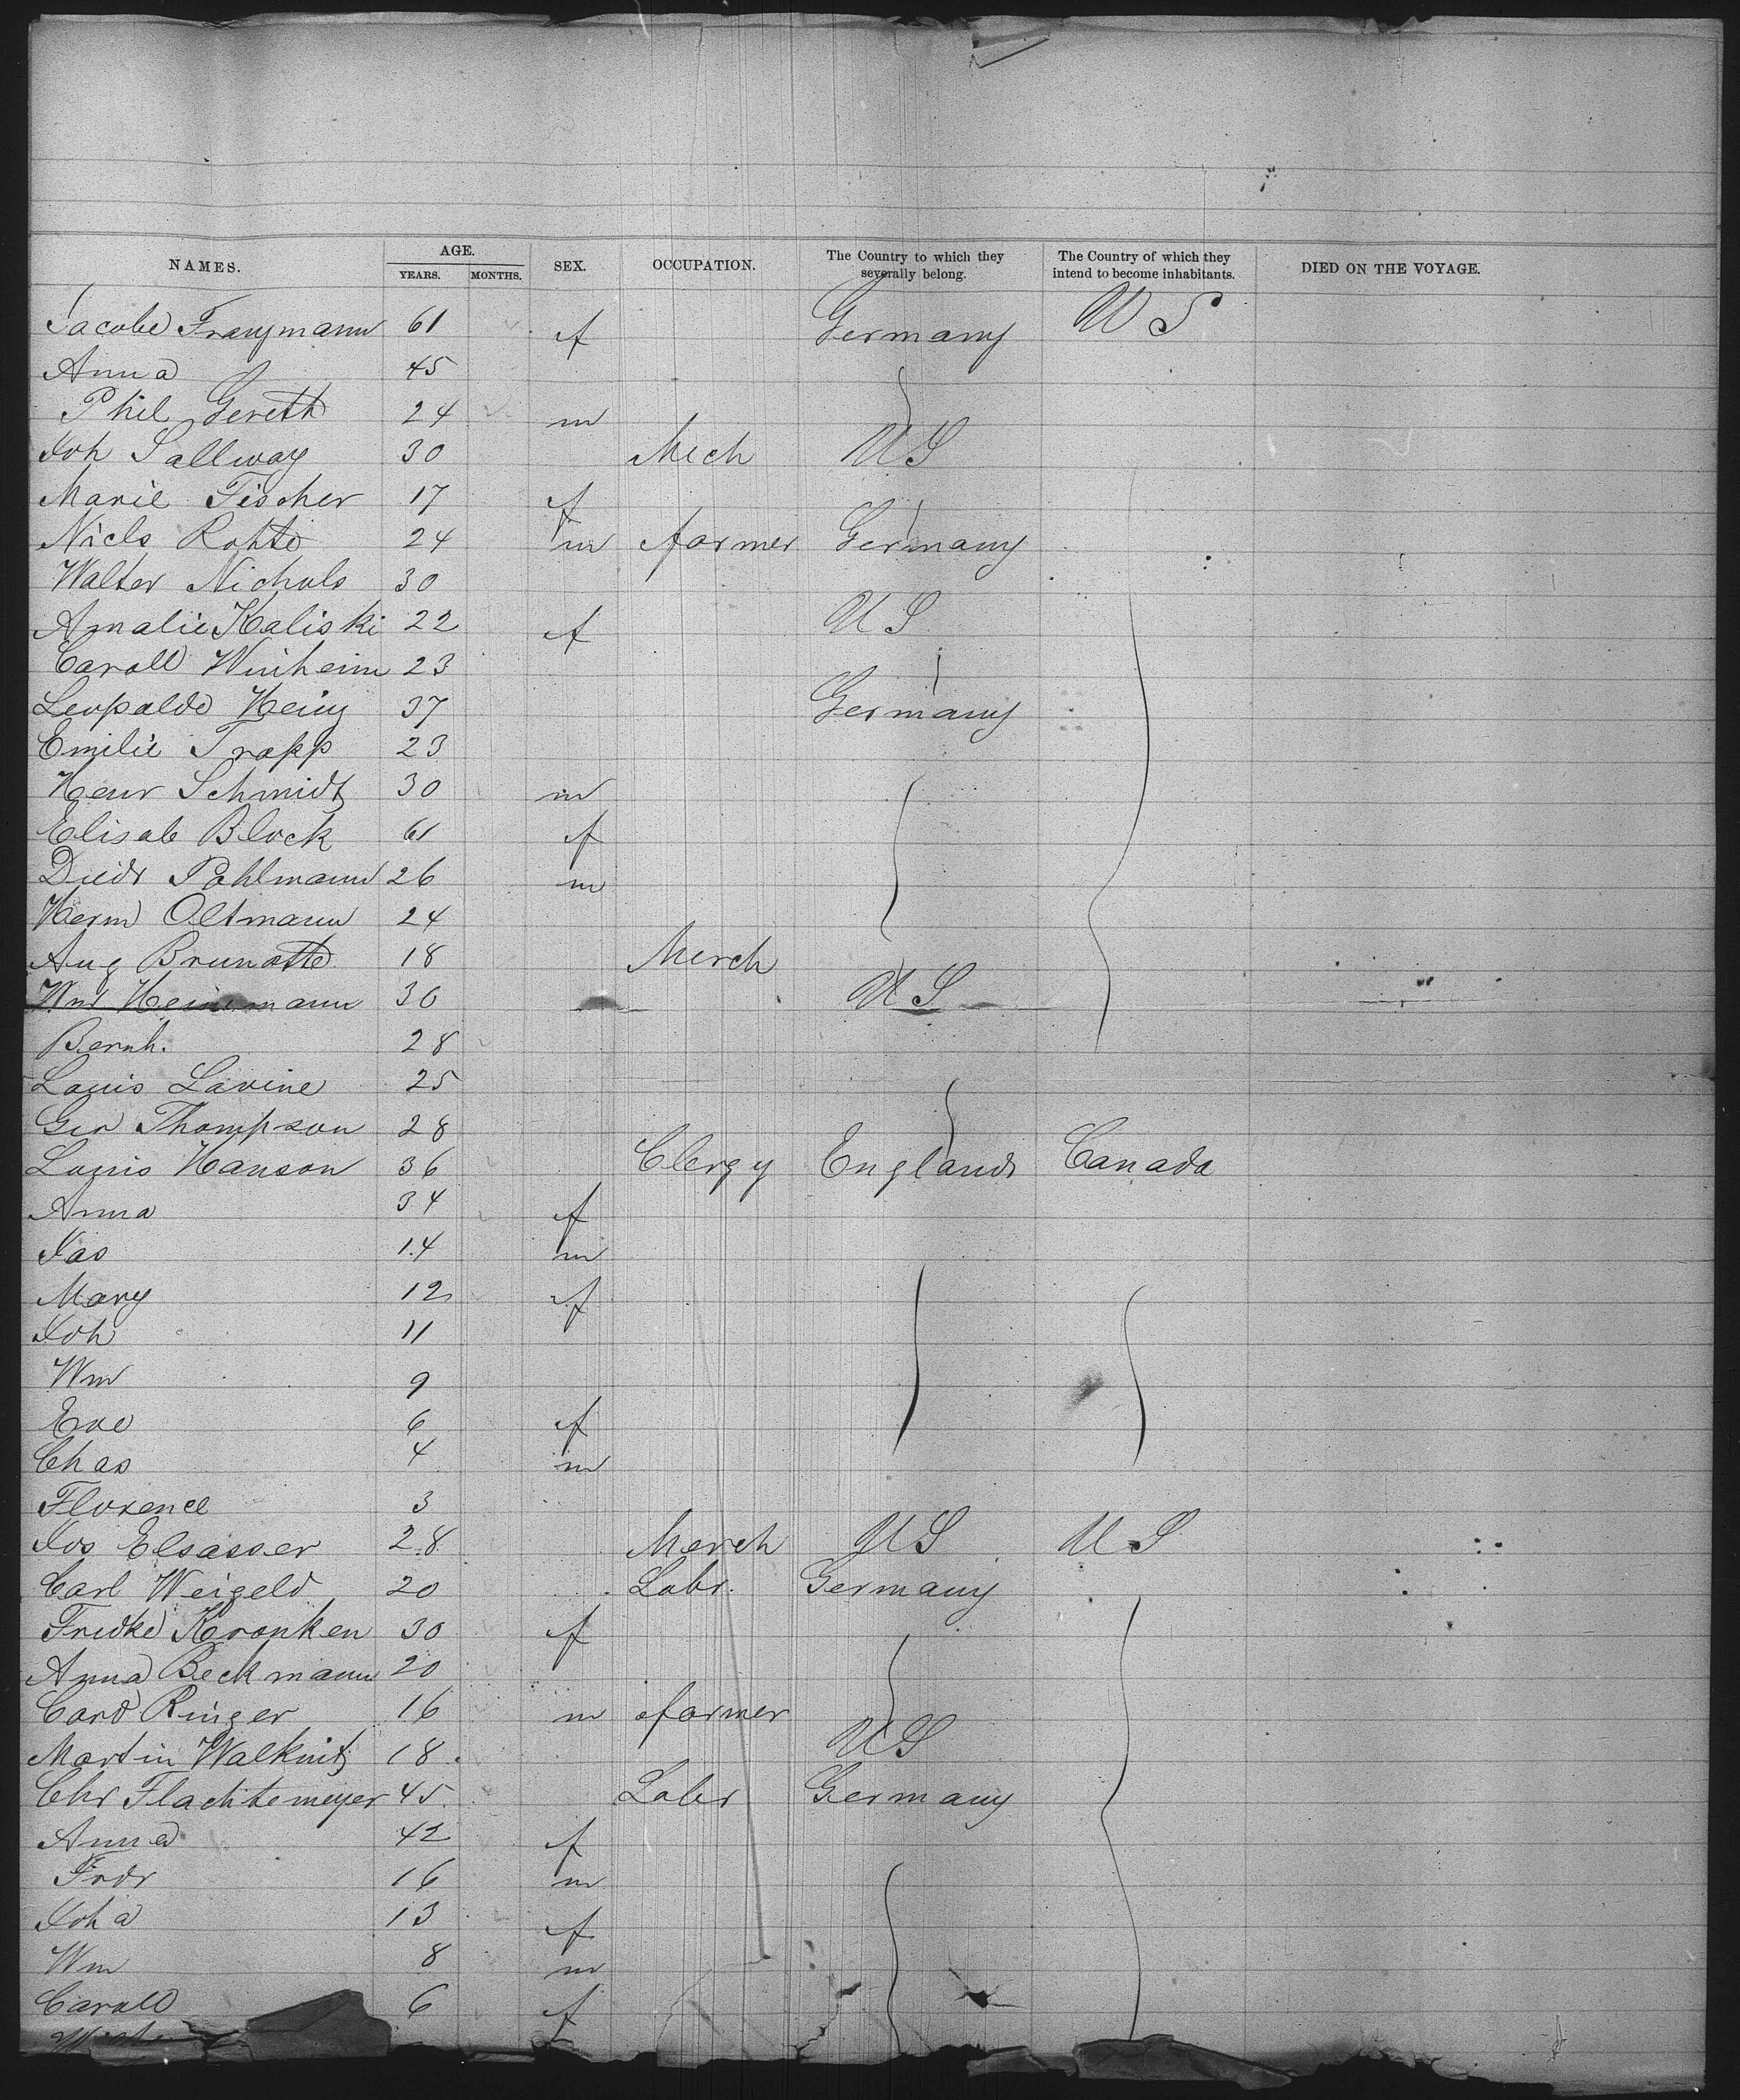 NAMES. AGE. SEX. OCCUPATION. The Country to which they severally belong. The Country of which they intend to become inhabitants. DIED ON THE VOYAGE.
YEARS. MONTHS.
Jacobe Franzmann 61 f Germany U S
Anna 45
Phil Gereth 24 m
Joh Sallway 30 Mech U S
Marie Fischer 17 f
Niels Rohte 24 m farmer Germany
Walter Nichols 30
Amalie Kaliski 22 f U S
Caroll Winheim 23
Leopolde Heinz 37 Germany
Emilie Trapp 23
Henr Schmidt 30 m
Elisab Block 61 f
Diedr Pohlmann 26 m
Herm Oltmann 24
Aug Brunotte 18 Merch
Wm Heinemann 30 U S
Bernh. 28
Louis Lavine 25
Geo Thompson 28
Louis Hanson 36 Clergy England Canada
Anna 34 f
Jas 14 m
Mary 12 f
Joh 11
Wm 9
Eve 6 f
Chas 4 m
Florence 3
Jos Elsasser 28 Merch U S U S
Carl Weigeld 20 Labr. Germany
Fredke Kronken 30 f
Anna Beckmann 20
Cord Ringer 16 m farmer
Martin Walknitz 18 U S
Chr Flachtemeyer 45 Labr Germany
Anna 42 f
Fredr 16 m
Joha 13 f
Wm 8 m
Caroll 6 f